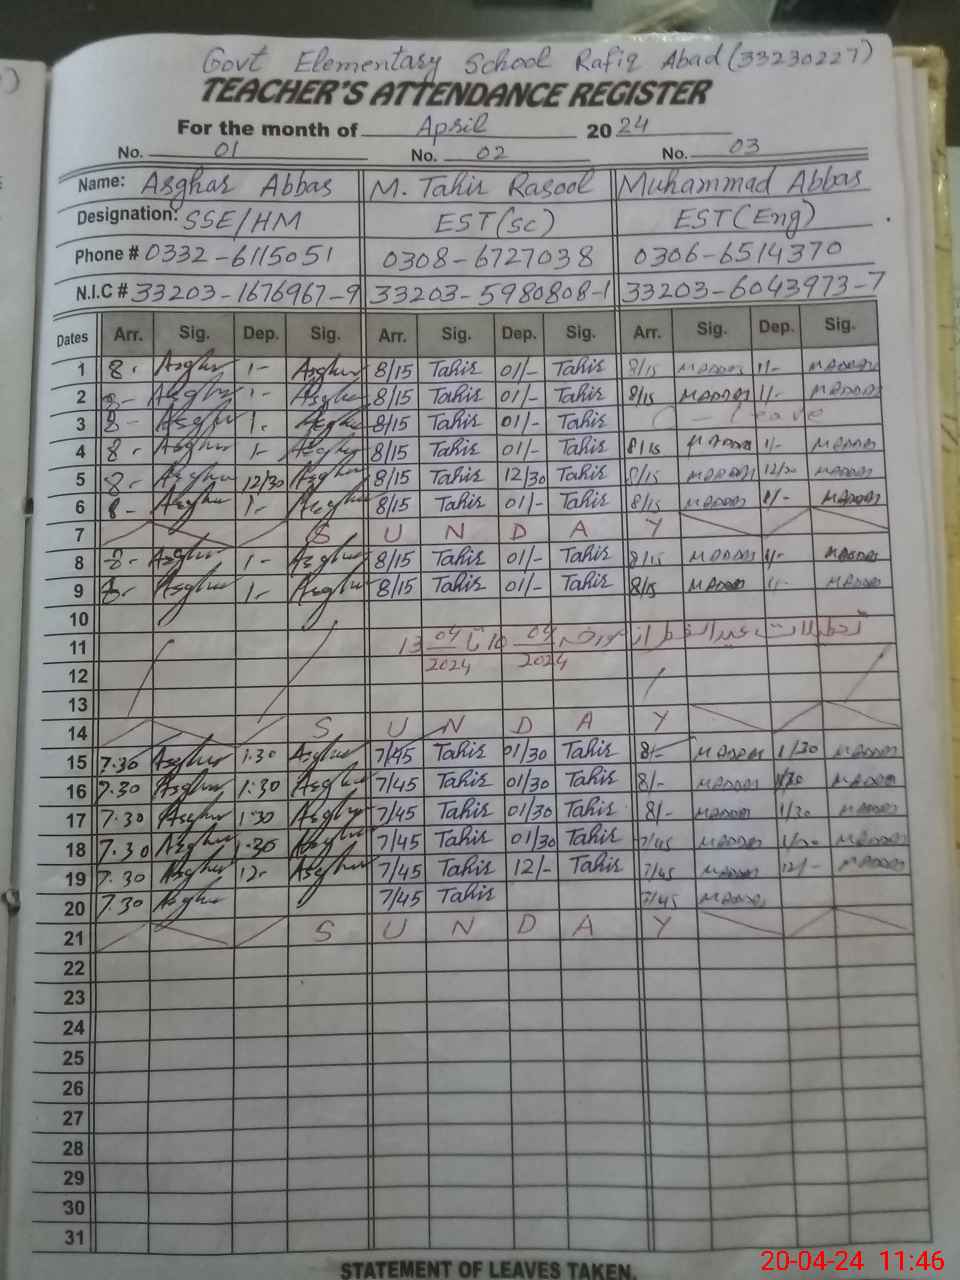 Govt Elementary School Rafiq Abad (33230227)
TEACHER'S ATTENDANCE REGISTER
For the month of April 2024
No. 01 No. 02 No. 03
Name: Asghar Abbas M. Tahir Rasool Muhammad Abbas
Designation: SSE/HM EST(Sc) EST(Eng)
Phone # 0332-6115051 0308-6727038 0306-6514370
N.I.C # 33203-1676967-9 33203-5980808-1 33203-6043973-7
Dates Arr. Sig. Dep. Sig. Arr. Sig. Dep. Sig. Arr. Sig. Dep. Sig.
1 8- Asghar 1- Asghar 8/15 Tahir 01/- Tahir 8/15 1/-
2 8- Asghar 1- Asghar 8/15 Tahir 01/- Tahir 8/15 1/-
3 8- Asghar 1- Asghar 8/15 Tahir 01/- Tahir C - leave
4 8- Asghar 1- Asghar 8/15 Tahir 01/- Tahir 8/15 1/-
5 8- Asghar 12/30 Asghar 8/15 Tahir 12/30 Tahir 8/15 12/30
6 8- Asghar 1- Asghar 8/15 Tahir 01/- Tahir 8/15 1/-
7 S U N D A Y
8 8- Asghar 1- Asghar 8/15 Tahir 01/- Tahir 8/15 1/-
9 8- Asghar 1- Asghar 8/15 Tahir 01/- Tahir 8/15
10
11 تعطیلات عیدالفطر از مورخہ 10 04/2024 تا 13 04/2024
12
13
14 S U N D A Y
15 7.30 Asghar 1:30 Asghar 7/45 Tahir 01/30 Tahir 8/- 1/30
16 7.30 Asghar 1:30 Asghar 7/45 Tahir 01/30 Tahir 8/- 1/30
17 7.30 Asghar 1:30 Asghar 7/45 Tahir 01/30 Tahir 8/- 1/30
18 7.30 Asghar 1.30 Asghar 7/45 Tahir 01/30 Tahir 7/45 1/30
19 7.30 Asghar 12- Asghar 7/45 Tahir 12/- Tahir 7/45 12/-
20 7.30 Asghar 7/45 Tahir 7/45
21 S U N D A Y
22
23
24
25
26
27
28
29
30
31
STATEMENT OF LEAVES TAKEN.
20-04-24 11:46